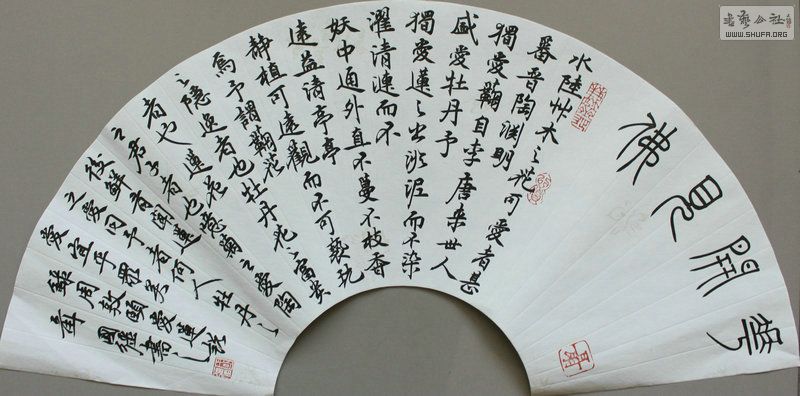 華開見佛
水陸艸木之花可愛者甚
蕃晉陶淵明
獨愛菊自李唐來世人
盛愛牡丹予
獨愛蓮之出淤泥而不染
濯清漣而不
妖中通外直不蔓不枝香
遠益清亭亭
靜植可遠觀而不可褻玩
焉予謂菊花
之隱逸者也牡丹花之富貴
者也蓮花
之君子者也噫菊之愛陶
後鮮有聞蓮
之愛同予者何人牡丹之
愛宜乎眾矣
周敦頤愛蓮說
國維書
WWW.SHUFA.ORG